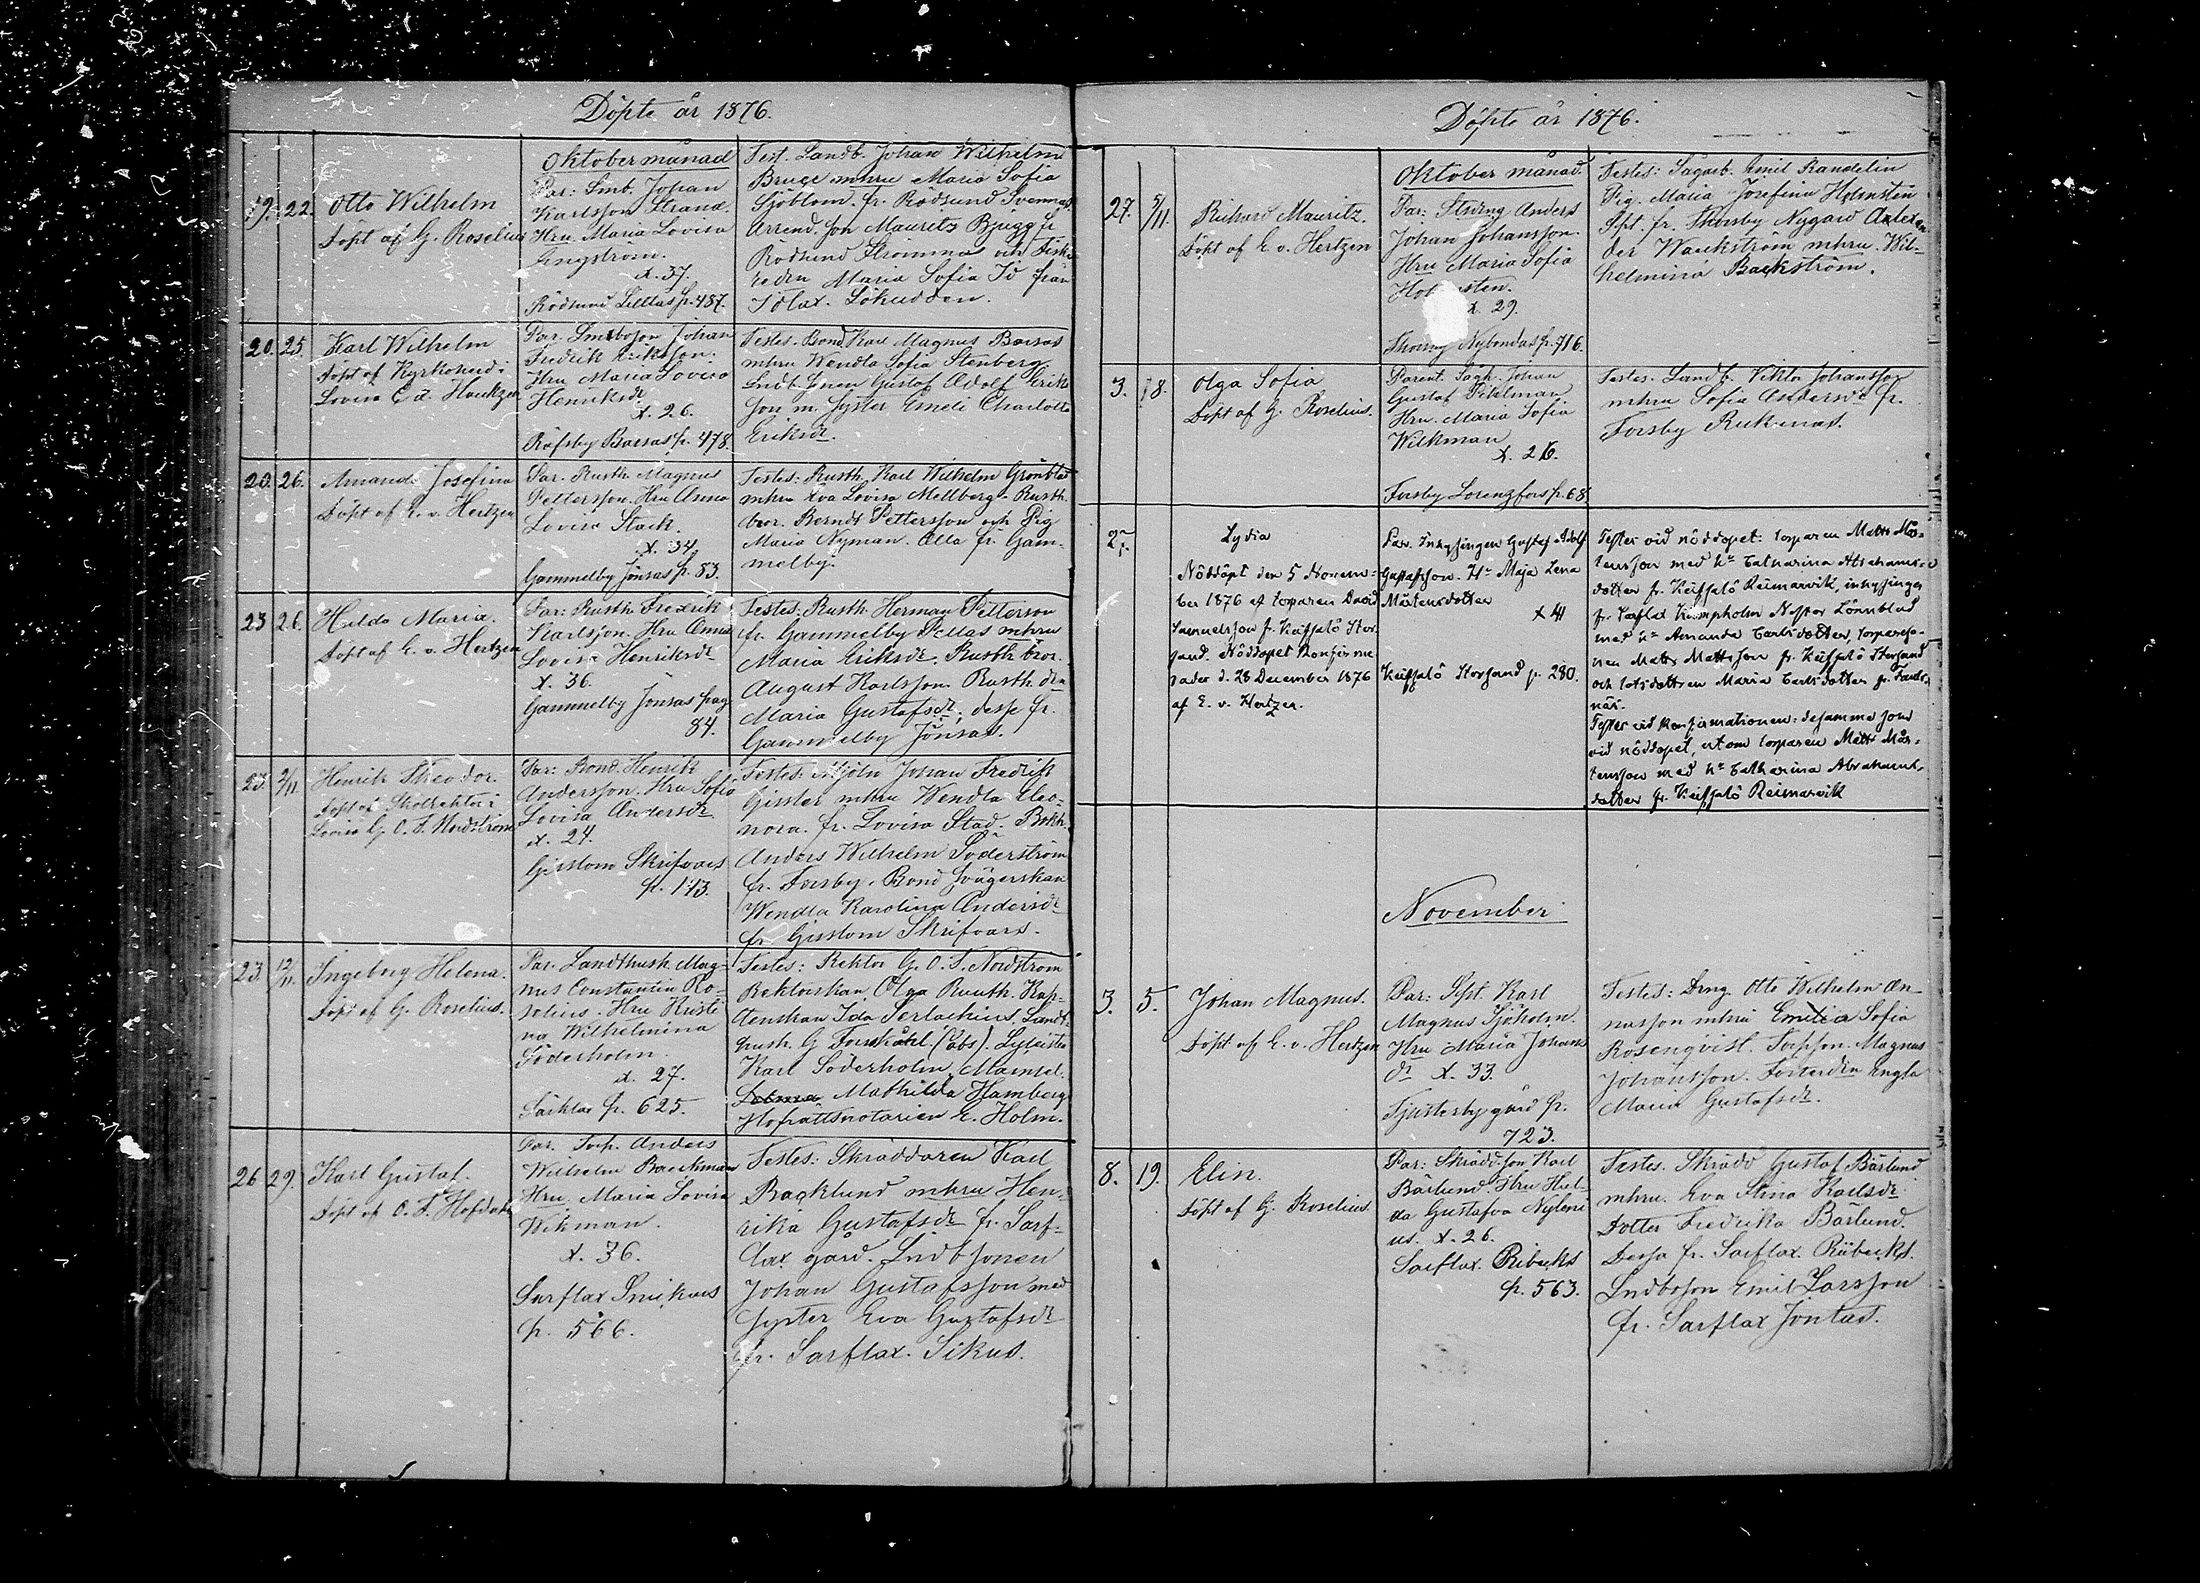 Döpte år 1876.
Oktober månad
19. 22.
Otto Wilhelm
Döpt af G. Roselius
Par: Smb. Johan
Karlsson Strand.
Hru Maria Lovisa
Engström.
x. 37.
Rödsund Lilltas p. 487.
Test. Landb. Johan Wilhelm
Bruce mhru Maria Sofia
Sjöblom. fr. Rödsund Svennas
Arrend. son Maurits Bjugg fr
Rödsund Strömma och
Maria Sofia från
20. 25.
Karl Wilhelm
Döpt af Kyrkoherd. i
Lovisa
Par. Smbson Johan
Fredrik Eriksson.
Hru Maria Lovisa
Henriksdr
x. 26.
Räfsby Bassas p. 478.
Testes. Bond. Karl Magnus Bassas
mhru Wendla Sofia Stenberg
Gustaf Adolf Eriks
son m. syster Emeli Charlotta
Eriksdr.
20. 26.
Amanda Josefina
Döpt af E. v. Hertzen
Par. Rusth. Magnus
Pettersson. Hru Anna
Lovisa Stark.
x. 34
Gammelby Jönsas p. 83.
Testes: Rusth. Karl Wilhelm Grönblad
mhru Eva Lovisa Mellberg. Rusth.
bror. Berndt Pettersson och Pig
Maria Nyman. Alla fr. Gam-
melby.
23 26.
Hulda Maria.
Döpt af E. v. Hertzen
Par: Rusth. Fredrik
Karlsson. Hru Anna
Lovisa Henriksdr
x. 36.
Gammelby Jönsas pag
84.
Testes: Rusth. Herman Petterson
fr. Gammelby Pellas mhru
Maria Eriksdr. Rusth. bror.
August Karlsson. Rusth. dra
Maria Gustafsdr; desse fr.
Gammelby Jönsas.
23. 2/11
Henrik Theodor.
Döpt af Skolrektor i
Lovisa G. O. F. Nordström
Par: Bond. Henrik
Andersson. Hru Sofia
Lovisa Andersdr
x. 24.
Gisslom Skrifvars
p. 143.
Testes. Mjöln Johan Fredrik
Gissler mhru Wendla Eleo-
nora. fr. Lovisa Stad. Bokh.
Anders Wilhelm Söderström
fr. Forsby. Bond. svägerskan
Wendla Karolina Andersdr
fr. Gisslom Skrifvars.
23. 12/11.
Ingeborg Helena.
Döpt af G. Roselius.
Par. Landthush. Mag-
nus Constantin Ro-
selius. Hru Kristi
na Wilhelmina
Söderholm.
x. 27.
Särklax p. 625.
Testes: Rektor G. O. F. Nordström
Rektorskan Olga Ruuth. Kap-
tenskan Ida Serlachius Landt-
hush. G Forsskåhl. (Abs). Lyceist
Karl Söderholm, Mamsel.
Mathilda Hamberg
Hofrättsnotarien E. Holm.
26 29.
Karl Gustaf.
Döpt af O. F. Hofdahl
Par. Torp. Anders
Wilhelm Backman
Hru. Maria Lovisa
Wikman.
x. 36.
Sarflax
p. 566.
Testes: Skräddaren Karl
Backlund mhru Hen-
rika Gustafsdr fr. Sarf-
lax gård. Lndbsonen
Johan Gustafsson med
syster Eva Gustafsdr
fr. Sarflax. Sikus.
Döpte år 1876.
Oktober månad.
27. 5/11.
Rikard Mauritz.
Döpt af E. v. Hertzen
Par: Sträng Anders
Johan Johansson.
Hru Maria Sofia
x. 29.
Nybondas p. 716.
Testes: Sågarb. Emil Randelin
Pig. Maria Josefina Holmsten
Spt. fr. Thorsby Nygård Alexan
der Wackström mhru. Wil-
helmina Backström.
3. 18.
Olga Sofia
Döpt af G. Roselius.
Parent. Sågk. Johan
Gustaf Pihlman
Hru. Maria Sofia
Wilkman
x. 26.
Forsby Lorenzfors p. 68.
Testes: Landb. Viktor Johansson
mhru Sofia Andersdr fr.
Forsby Rukmas.
27.
Lydia
Nöddöpt den 5 Novem-
ber 1876 af torparen David
Samuelsson fr. Keitsalö Stor
sand. Nöddopet Konfirme
rades d. 28 December 1876
af E. v. Hertzen.
Par. Inhysingen Gustaf Adolf
Gustafsson. Hu Maja Lena
Mårtensdotter
x 41
Keitsalö Storsand p. 280.
Testes vid nöddopet: torparen Matts Mår-
tensson med hu Catharina Abrahams-
dotter fr. Keitsalö Reimarvik, inhysingen
fr. Sarflax Kampholm Nestor Lönnblad
med hu Amanda Carlsdotter, torpareso-
nen Matts Mattsson fr. Keitsalö Storsand
och lotsdottren Maria Carlsdotter fr.
Testes vid konfirmationen: desamma som
vid nöddopet, utom torparen Matts Mår-
tensson med hu Catharina Abrahams-
dotter fr. Keitsalö Reimarvik
November
3. 5.
Johan Magnus.
Döpt af E. v. Hertzen
Par: Spt. Karl
Magnus Sjöholm.
Hru Maria Johans
dr x. 33.
Tjusterby gård p.
723.
Testes: Dräng. Otto Wilhelm An-
nasson mhru Emilia Sofia
Rosenqvist. Torpson. Magnus
Johansson. Fosterdra Engla
Maria Gustafsdr.
8. 19.
Elin.
Döpt af G. Roselius.
Par: Skrädd. son Karl
Bärlund. Hru Hul-
da Gustafva Nyleni
us. x. 26.
Sarflax. Ribacks
p. 563.
Testes. Skrädd Gustaf Bärlund
mhru. Eva Stina Karlsdr
Dotter Fredrika Bärlund.
Dessa fr. Sarflax. Ribacks.
Lndbson Emil Larsson
fr. Sarflax Jontas.